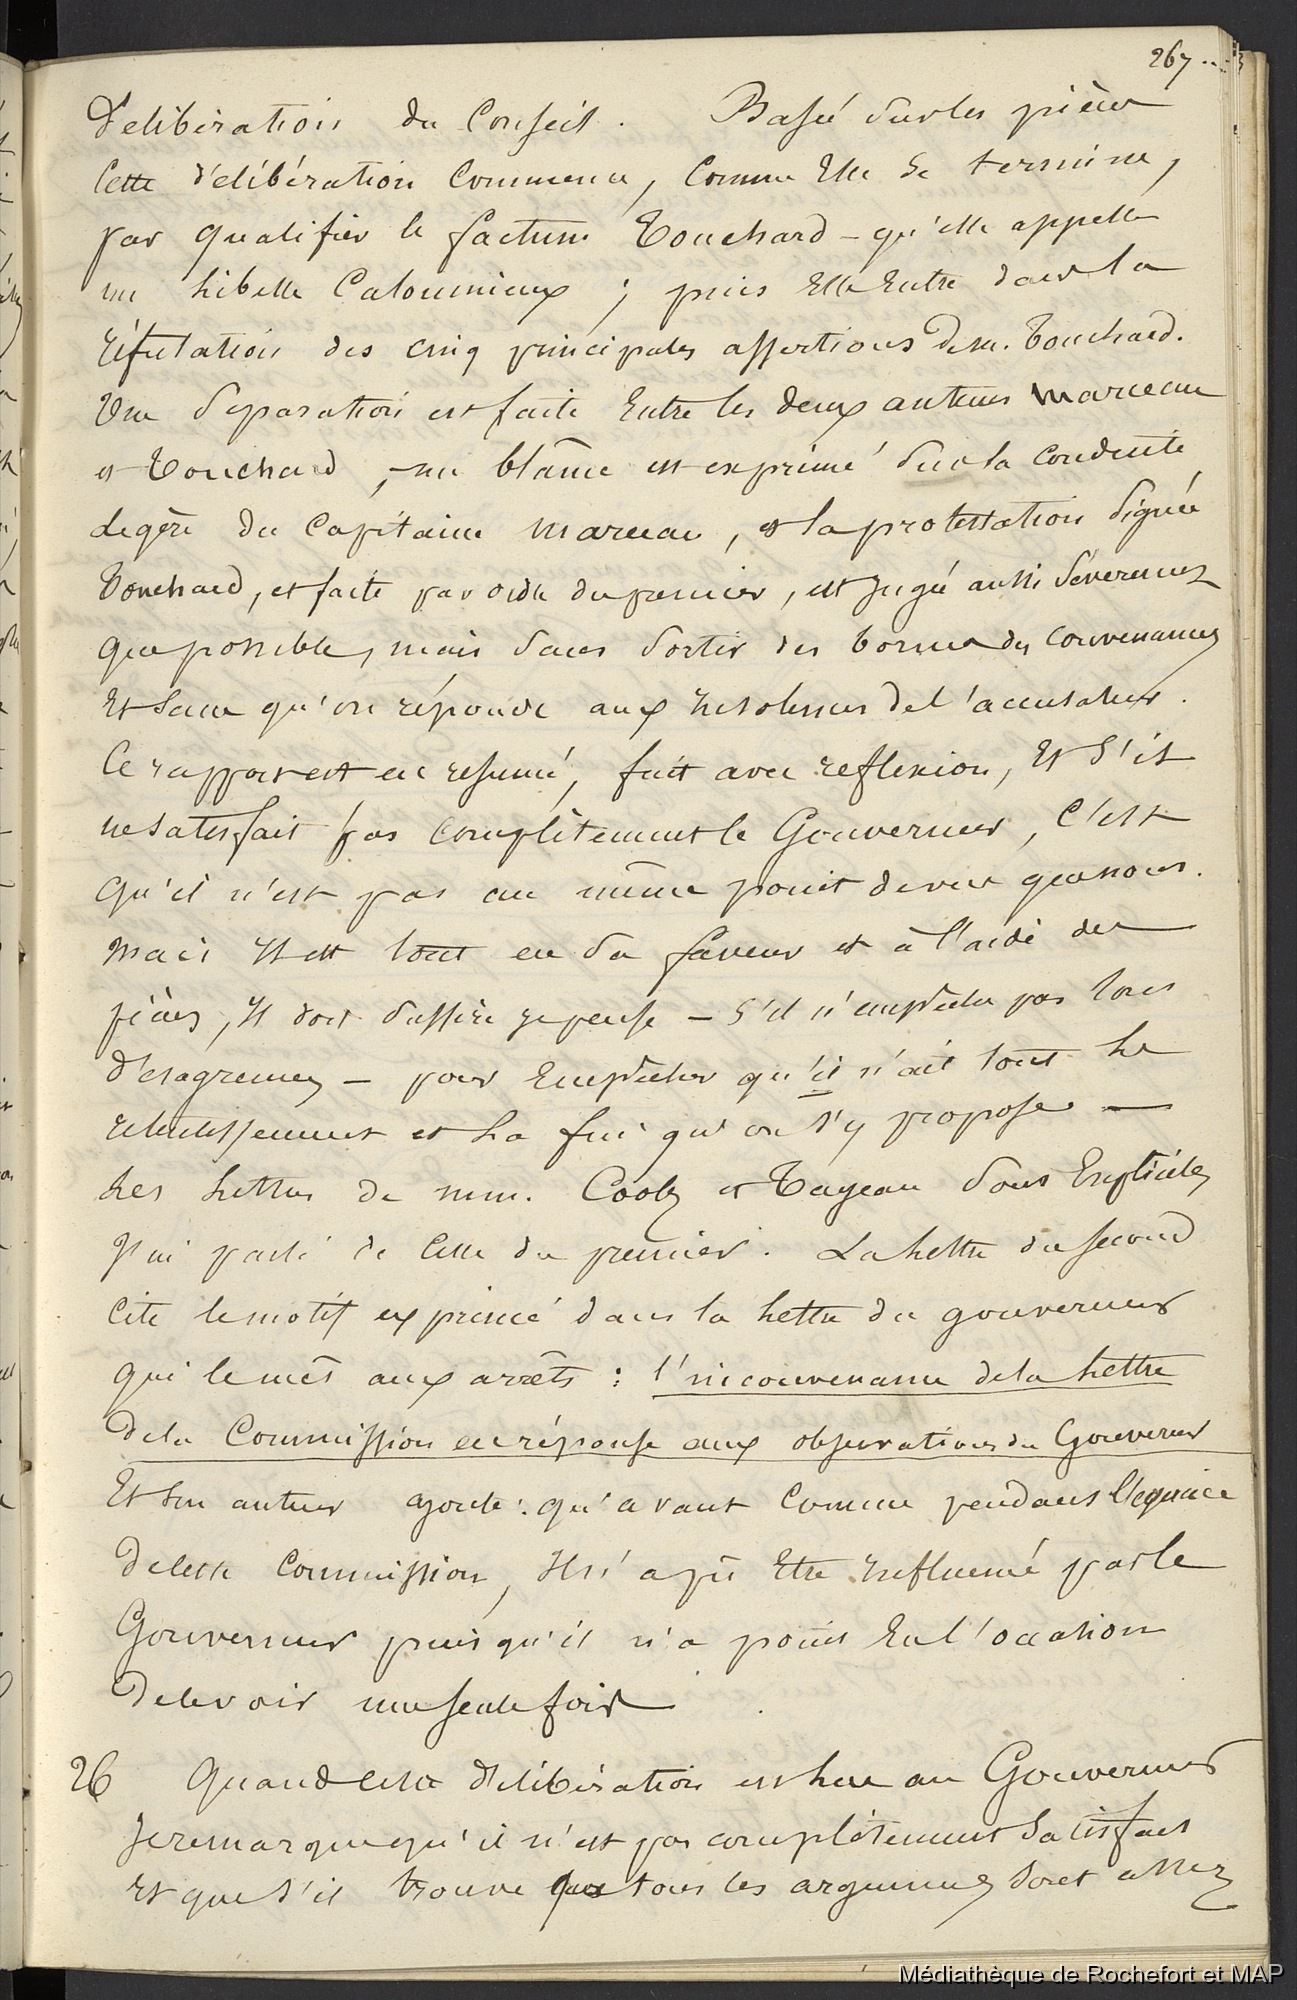 267
Délibération du Conseil. Basée sur les pièces
Cette délibération Commence, Comme Elle Se termine,
par qualifier le factum Touchard - qu'elle appelle
un Libelle Calomnieux ; puis Elle Entre dans la
réfutation des cinq principales assertions de m. Touchard.
Une Séparation est faite Entre les deux auteurs Marceau
et Touchard, - un blâme est exprimé Sur la Conduite
Légère du Capitaine Marceau, et la protestation Signée
Touchard, et faite par ordre du premier, est jugée aussi Sévèrement
que possible, mais Sans Sortir des bornes des Convenances
Et Sans qu'on réponde aux Insolences de l'accusateur.
Ce rapport est en resumé, fait avec reflexion, Et S'il
ne Satisfait pas complètement le Gouverneur, C'est
qu'il n'est pas au même point de vue que nous.
Mais Il est tout en Sa faveur et à l'aide des
pièces, Il doit Suffire je pense - S'il n'empêche pas tous
désagremens - pour Empêcher qu'il n'ait tout Le
retentissement et La fin qu'on S'y propose -
Les Lettres de mm. Cooly et Tayeau Sont Explicites
J'ai parlé de Celle du premier. La Lettre du Second
Cite le motif exprimé dans la Lettre du gouverneur
qui le mêt aux arrêts : l'inconvenance de la Lettre
de la Commission en réponse aux observations du Gouverneur
Et Son auteur ajoute : qu'avant Comme pendant l'Exercice
de cette Commission, Il n'a pû Etre Influencé par le
Gouverneur puisqu'il n'a point Eu l'occasion
de le voir une Seule fois
26 Quand cette délibération est Lue au Gouverneur
Je remarque qu'il n'est pas complètement Satisfait
Et que S'il trouve que tous les argumens Sont assez
Médiathèque de Rochefort et MAP